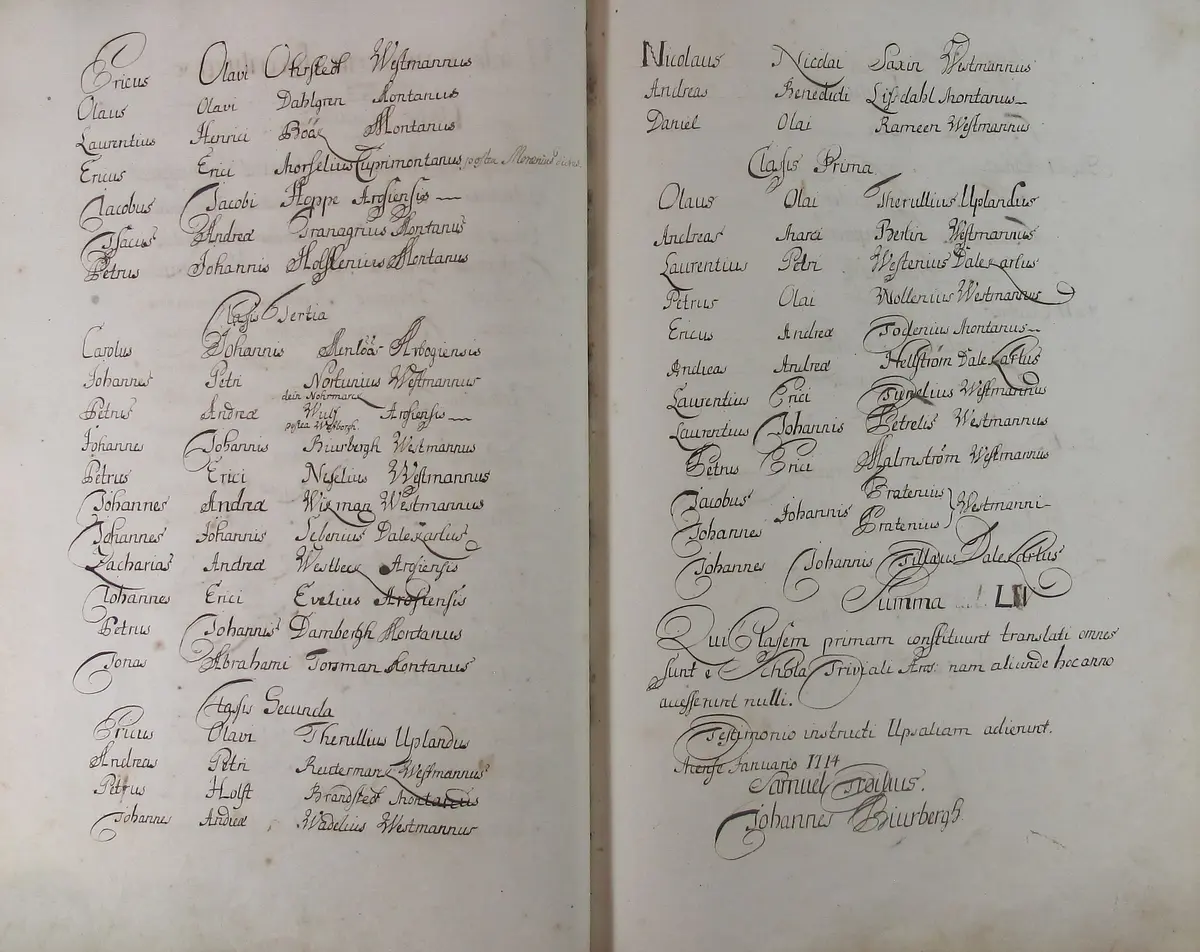 Ericus Olavi Ohrstedt Westmannus
Olaus Olavi Dahlgren Montanus
Laurentius Henrici Bööк Montanus
Ericus Erici Morselius Cuprimontanus postea
Jacobus Jacobi Hoppe Arosiensis
Isacus Andreæ Tranagrius Montanus
Petrus Johannis Holstenius Montanus
Classis Tertia
Carolus Johannis Menlöös Arbogiensis
Johannes Petri Nortunius Westmannus
dein Nohrman
Petrus Andreæ Wulf Arosiensis
postea Westbergh.
Johannes Johannis Biurbergh Westmannus
Petrus Erici Neselius Westmannus
Johannes Andreæ Wikman Westmannus
Johannes Johannis Sebenius Dalekarlus
Zacharias Andreæ Westbeck Arosiensis
Johannes Erici Evelius Arosiensis
Petrus Johannis Dambergh Montanus
Jonas Abrahami Torsman Montanus
Classis Secunda
Ericus Olavi Therullius Uplandus
Andreas Petri Reuterman Westmannus
Petrus Holst Brandstedt Montanus
Johannes Andreæ Wadelius Westmannus
Nicolaus Nicolai Saxin Westmannus
Andreas Benedicti Lissdahl Montanus
Daniel Olai Rameen Westmannus
Classis Prima
Olaus Olai Therullius Uplandus
Andreas Marci Berlin Westmannus
Laurentius Petri Westenius Dalekarlus
Petrus Olai Mollenius Westmannus
Ericus Andreæ Todenius Montanus
Andreas Andreæ Hellström Dalekarlus
Laurentius Erici Tunelius Westmannus
Laurentius Johannis Petrelis Westmannus
Petrus Erici Malmström Westmannus
Jacobus Johannis Pratenius Westmanni
Johannes Pratenius
Johannes Johannis Tillæus Dalekarlus
Summa LII
Qui Classem primam constituunt translati omnes
sunt e Schola Triviali Aros: nam aliunde hoc anno
accesserunt nulli.
Testimonio instructi Upsaliam adierunt.
Mense Januario 1714
Samuel Troilius.
Johannes Biurbergh